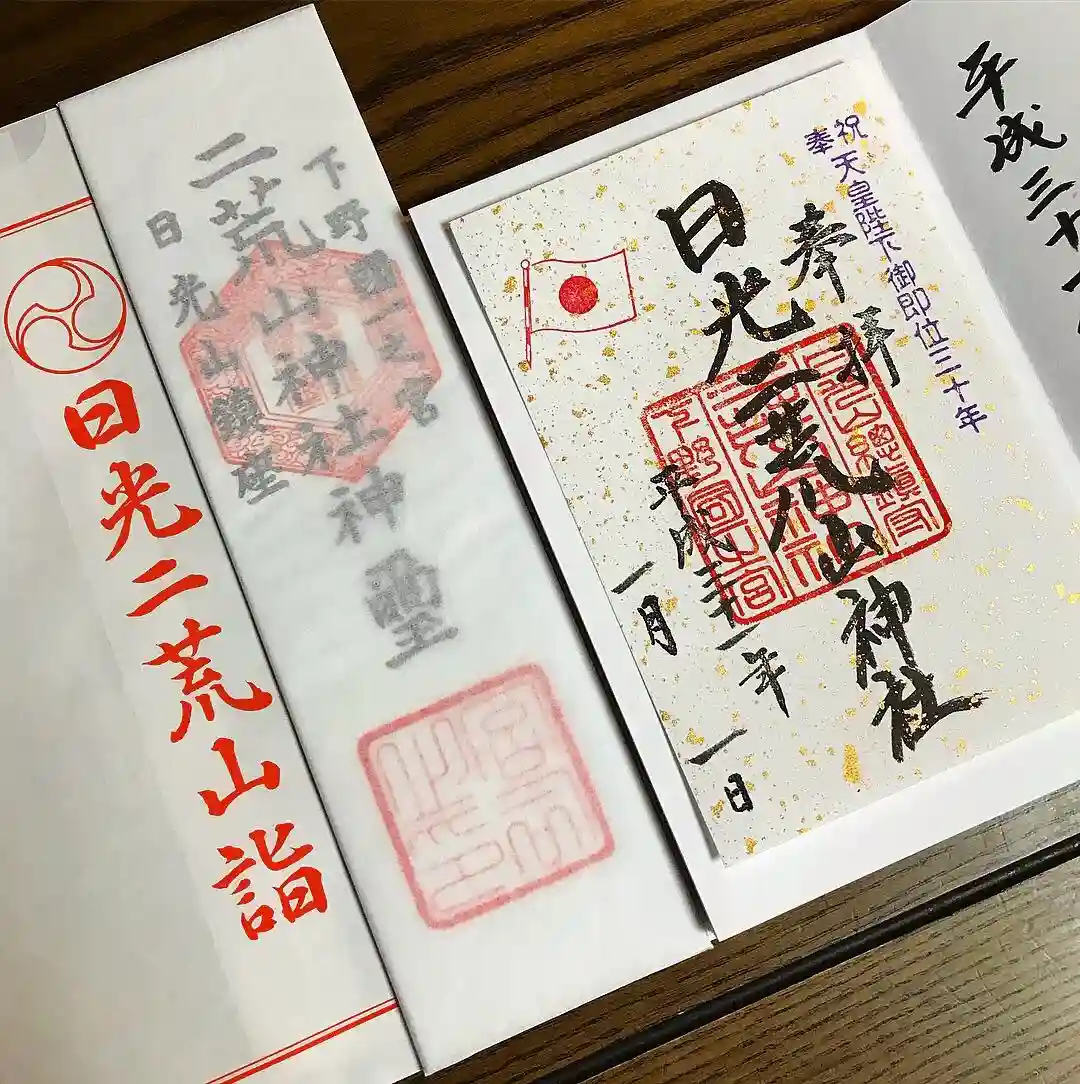 日光二荒山詣
下野國一之宮
二荒山神社神璽
日光山鎮座
祝天皇陛下御即位三十年
奉
奉拝
日光二荒山神社
平成三十一年
一月
一日
下野国一之宮
平成三十一